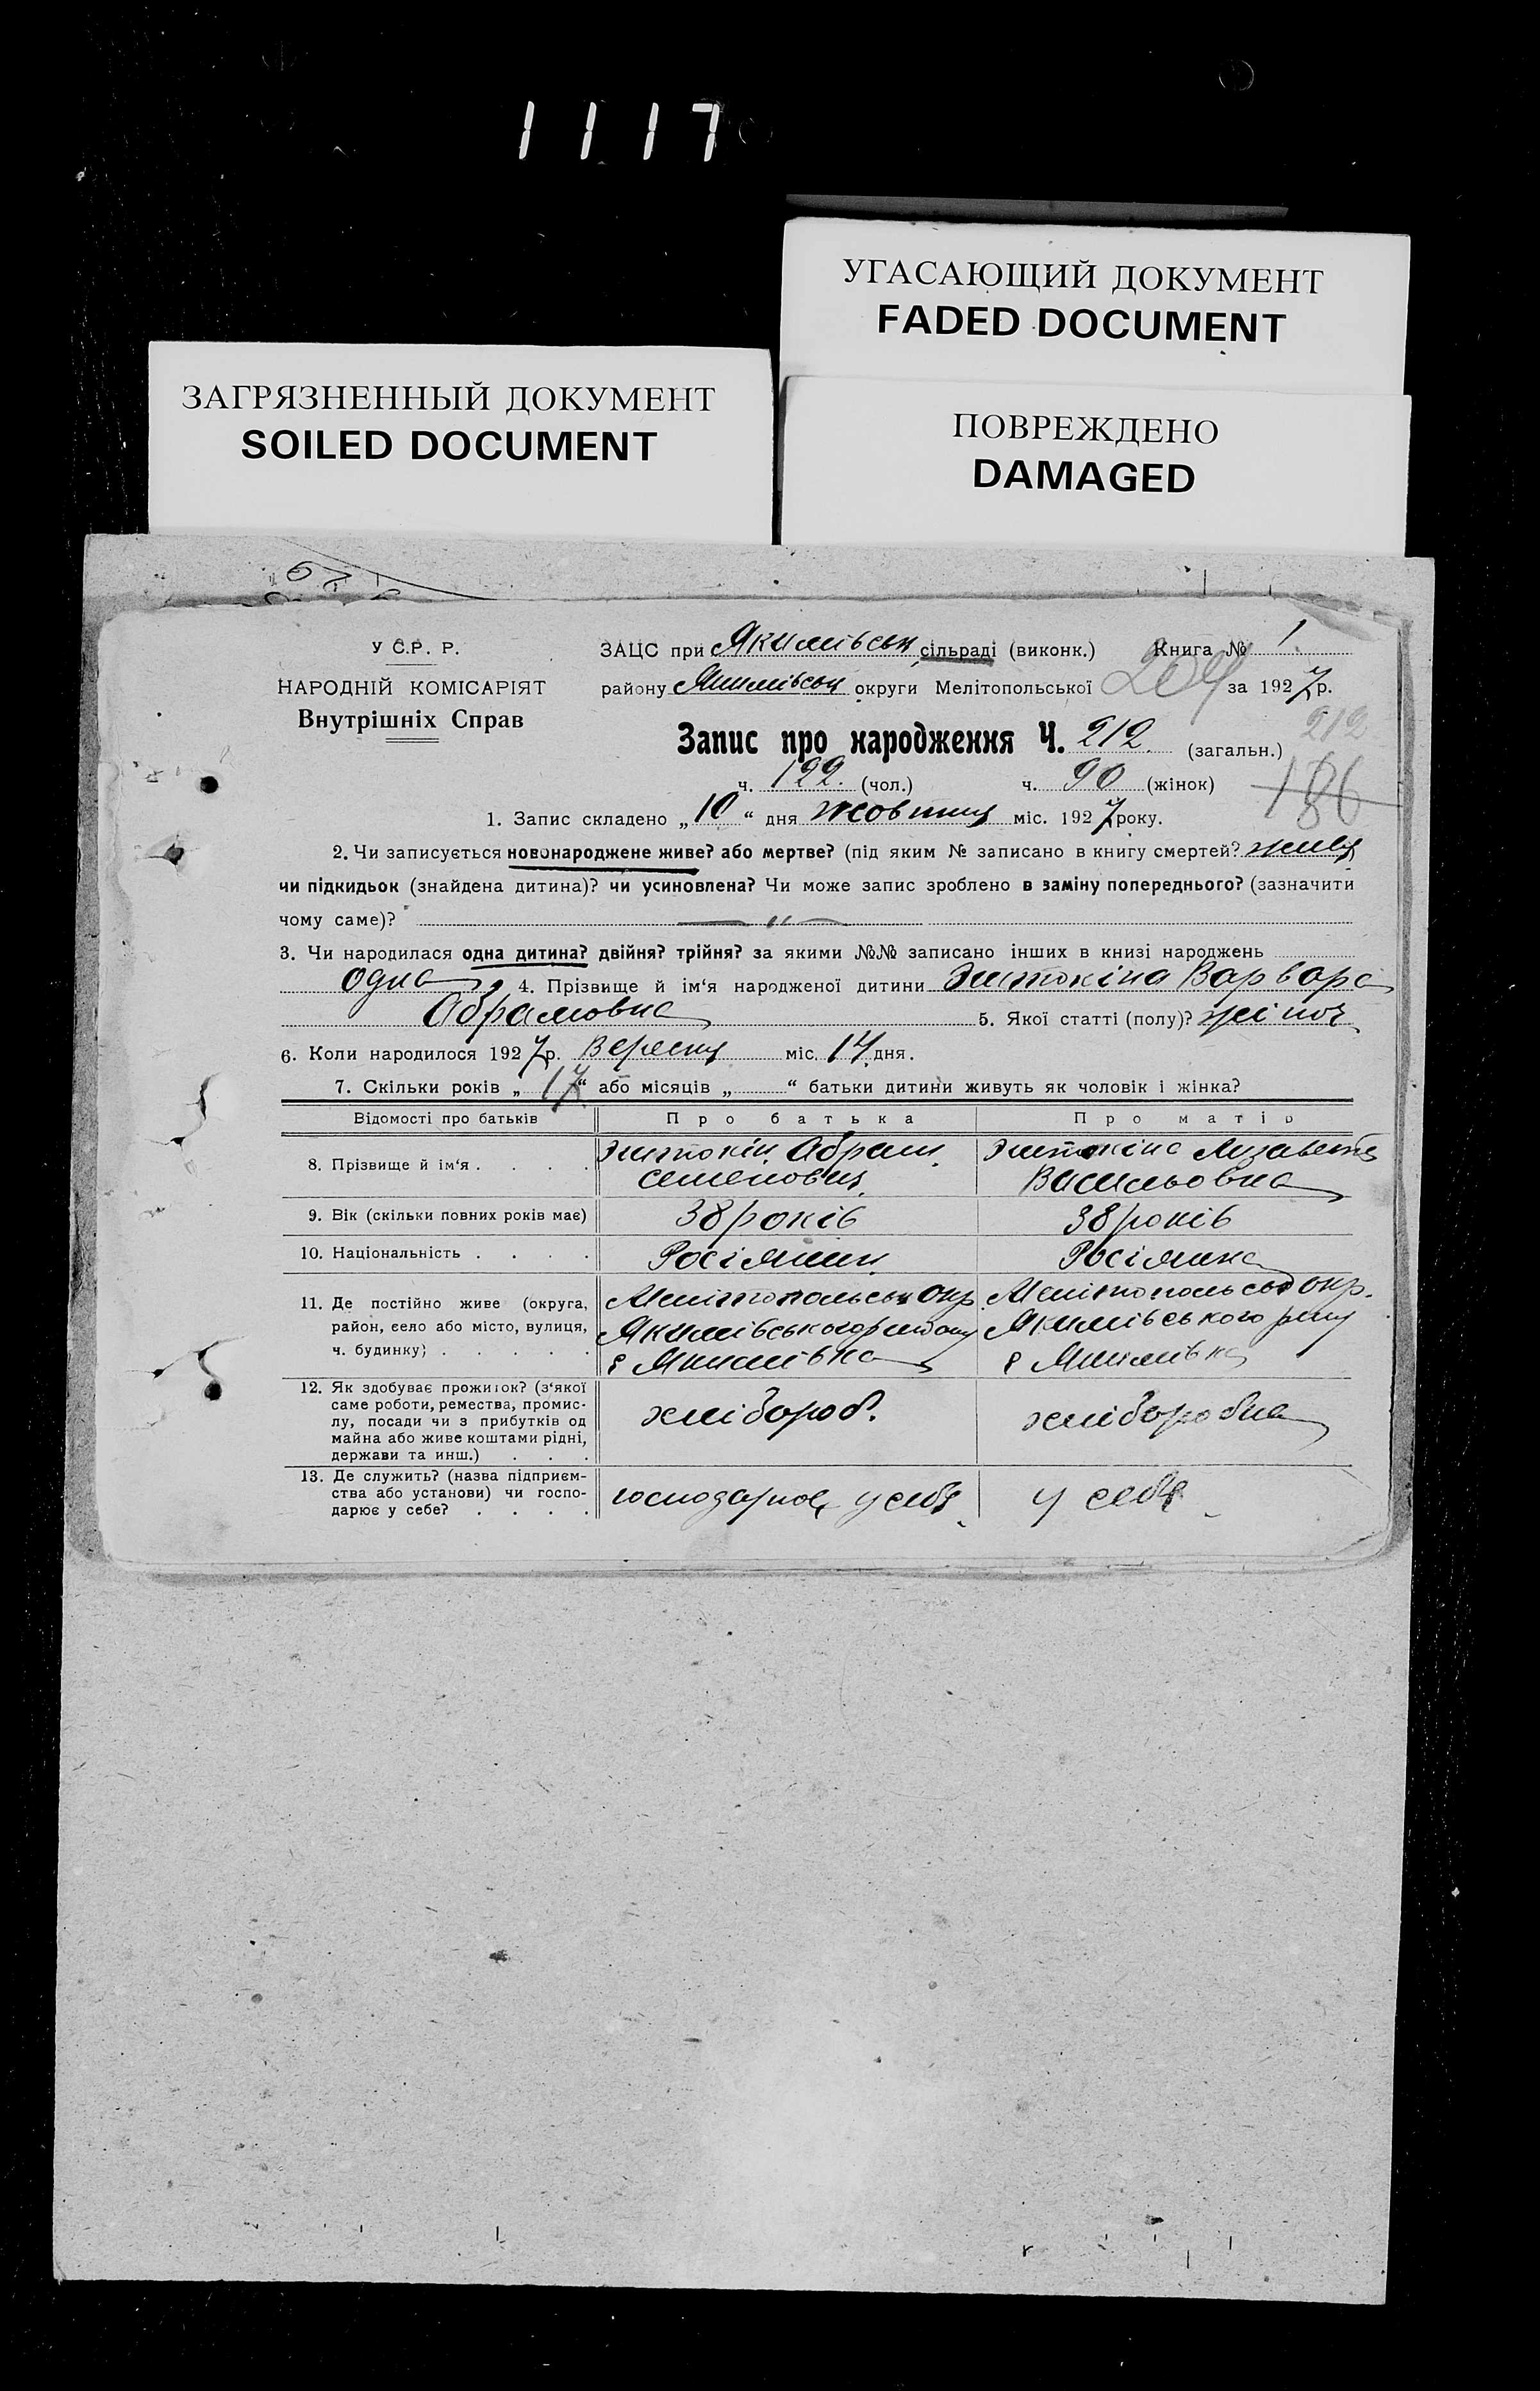 1117
УГАСАЮЩИЙ ДОКУМЕНТ
FADED DOCUMENT
ЗАГРЯЗНЕННЫЙ ДОКУМЕНТ
SOILED DOCUMENT
ПОВРЕЖДЕНО
DAMAGED
У С.Р. Р.
НАРОДНІЙ КОМІСАРІЯТ
Внутрішніх Справ
ЗАЦС при Якимівськ сільраді (виконк.) Книга № 1.
району Якимівськ округи Мелітопольської 204 за 1927 р.
Запис про народження Ч. 212. (загальн.) 212
ч. 122. (чол.) ч. 90 (жінок) 186
1. Запис складено „10“ дня жовтня міс. 1927 року.
2. Чи записується новонароджене живе? або мертве? (під яким № записано в книгу смертей?
чи підкидьок (знайдена дитина)? чи усиновлена? Чи може запис зроблено в заміну попереднього? (зазначити
чому саме)? — „ —
3. Чи народилася одна дитина? двійня? трійня? за якими №№ записано інших в книзі народжень
одна 4. Прізвище й ім‘я народженої дитини Варвара
Абрамовна 5. Якої статті (полу)? жіноч
6. Коли народилося 1927 р. Вересня міс. 14 дня.
7. Скільки років „17“ або місяців „ “ батьки дитини живуть як чоловік і жінка?
Відомості про батьків Про батька Про матір
8. Прізвище й ім‘я . . . . Абрам Лизавета
Семенович Васильовна
9. Вік (скільки повних років має) 38 років 38 років
10. Національність . . . . Росіянин Росіянка
11. Де постійно живе (округа, Мелітопольськ окр. Мелітопольськ окр.
район, село або місто, вулиця, Якимівського району Якимівського рну
ч. будинку) . . . . . Якимівка Якимівка
12. Як здобуває прожиток? (з‘якої
саме роботи, ремества, промис- хлібороб. хліборобка
лу, посади чи з прибутків од
майна або живе коштами рідні,
держави та инш.) . . .
13. Де служить? (назва підприєм-
ства або установи) чи госпо- господарює у себе у себе
дарює у себе? . . . .